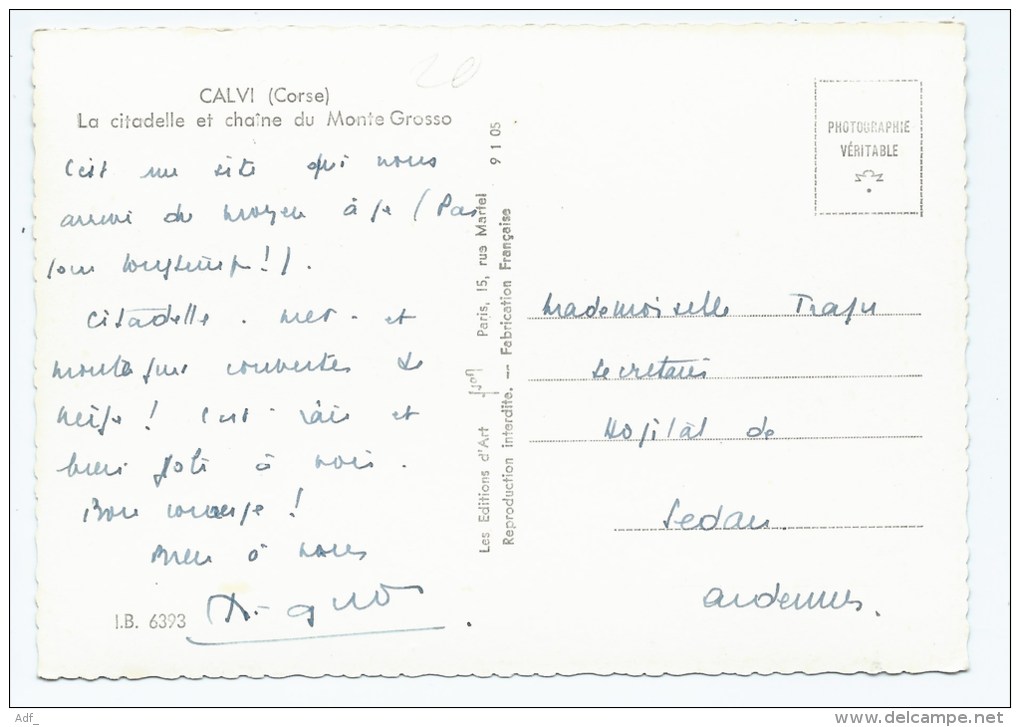 CALVI (Corse)
La citadelle et chaîne du Monte Grosso
20
C'est un site qui nous
arrive du moyen âge (Pas
pour longtemps!).
Citadelle. mer. et
montagnes couvertes de
neige! C'est rare et
bien joli à voir.
Bon courage!
Bien à vous
I.B. 6393
Les Editions d'Art Paris, 15, rue Martel 9 1 05
Reproduction interdite. — Fabrication Française
PHOTOGRAPHIE
VÉRITABLE
Mademoiselle
Secrétaire
Hôpital de
Sedan.
Ardennes.
Adf_
http://www.delcampe.net